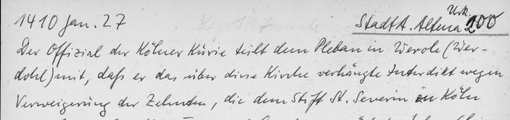 1410 Jan. 27 Stadt A. Altena Urk. 200
Der Offizial der Kölner Kurie teilt dem Pleban in Werole (Wer-
dohl) mit, daß er das über diese Kirche verhängte Interdikt wegen
Verweigerung der Zehnten, die dem Stift St. Severin in Köln